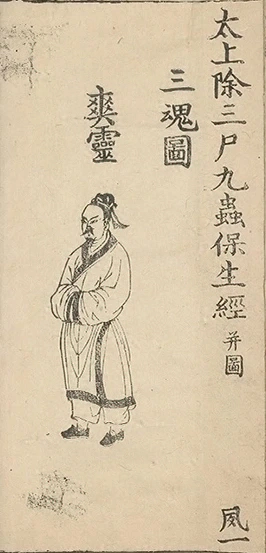 太上除三尸九蟲保生經 并圖 夙一
三魂圖
爽靈